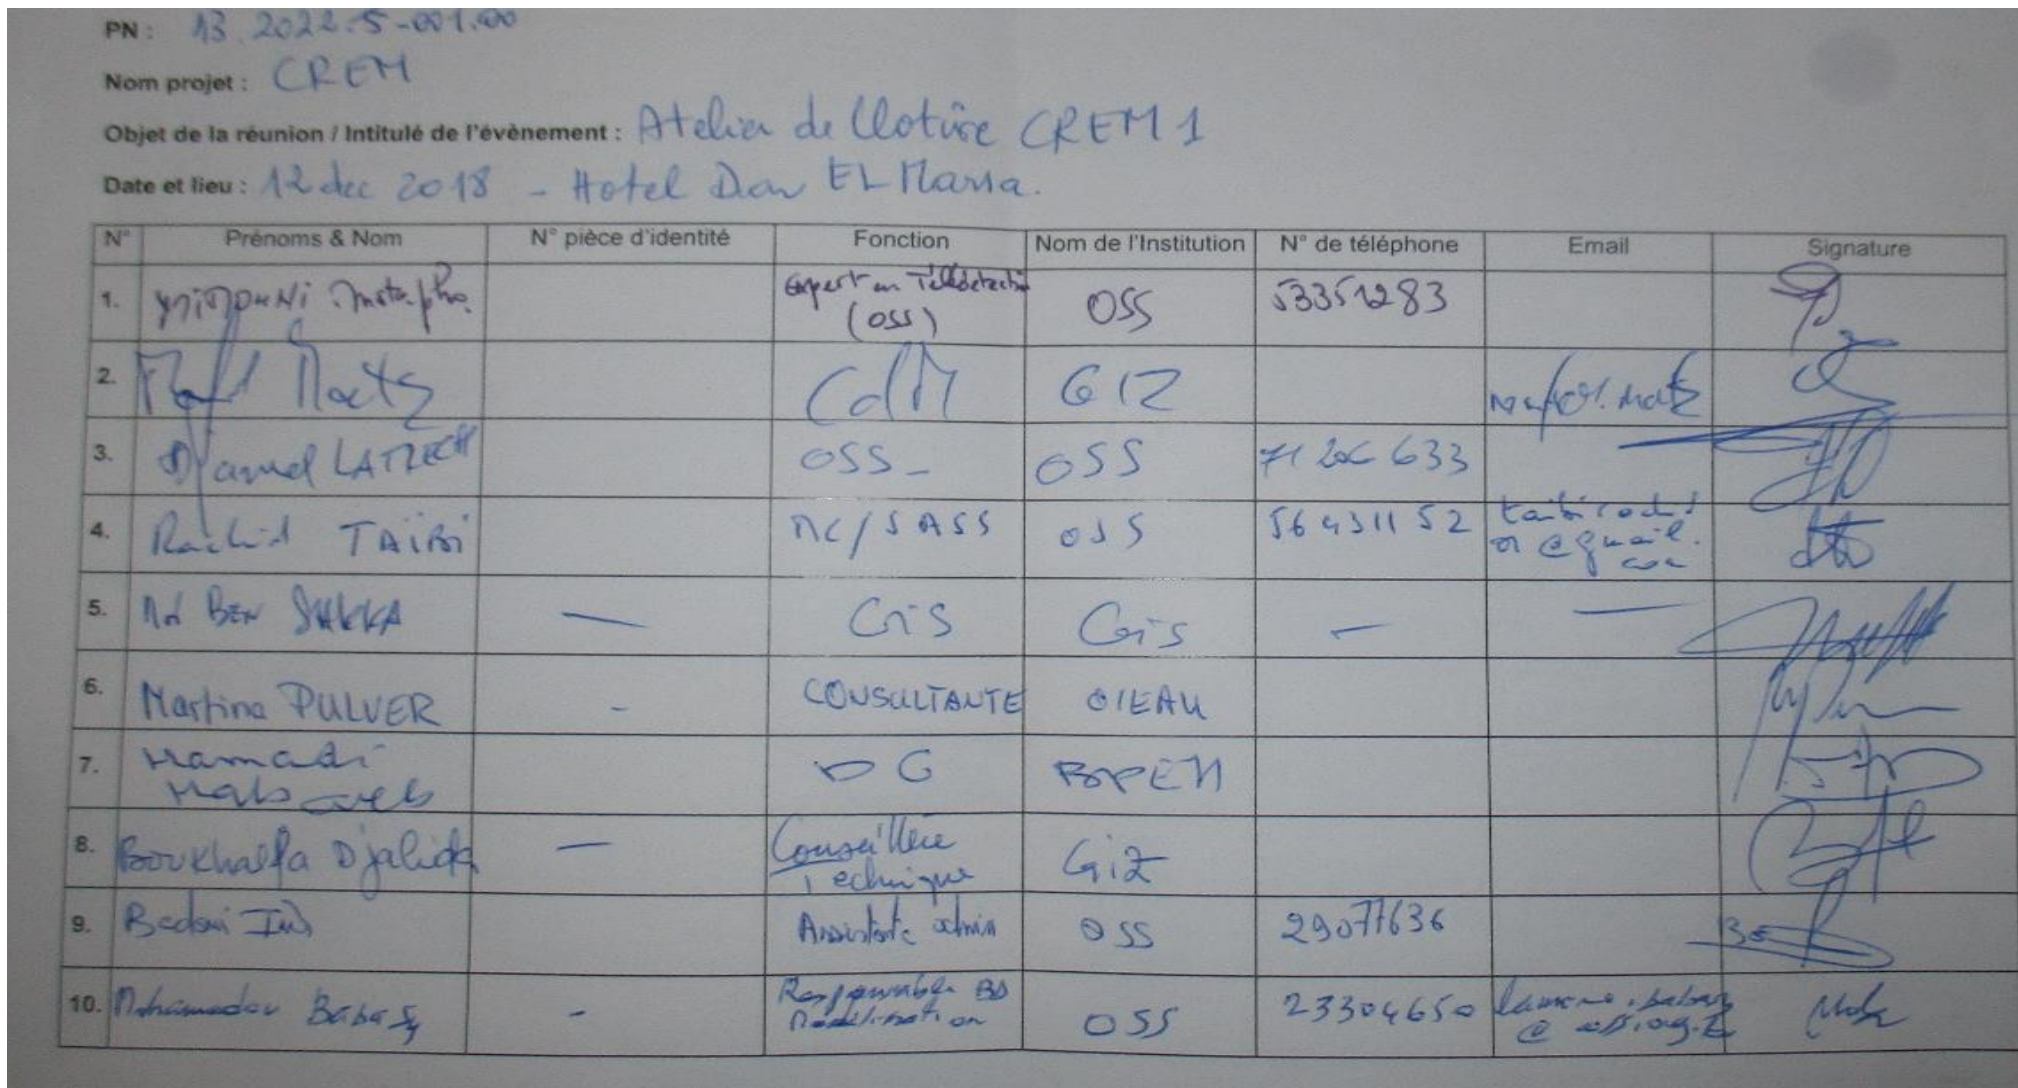 PN : 13.2022.5-001.00
Nom projet : CREM
Objet de la réunion / Intitulé de l'évènement : Atelier de Clotûre CREM 1
Date et lieu : 12 dec 2018 - Hotel Dar EL Marsa.
N° Prénoms & Nom N° pièce d'identité Fonction Nom de l'Institution N° de téléphone Email Signature
1. MIMOUNI Expert en Télédétection (OSS) OSS 53351283
2. Matz CdM GIZ
3. Djamel LATRECH OSS - OSS 633
4. Rachid TAÏBI OSS 56431152 @gmail.com
5. Md BEN SAKKA — GIS GIS — —
6. Martina PULVER - CONSULTANTE OIEAU
7. Hamadi DG BPEH
8. Boukhalfa Djalida — Conseillère Technique GiZ
9. Assistante admin OSS 29077636
10. Mohamadou Baba Sy - Responsable BD Modélisation OSS 23304650